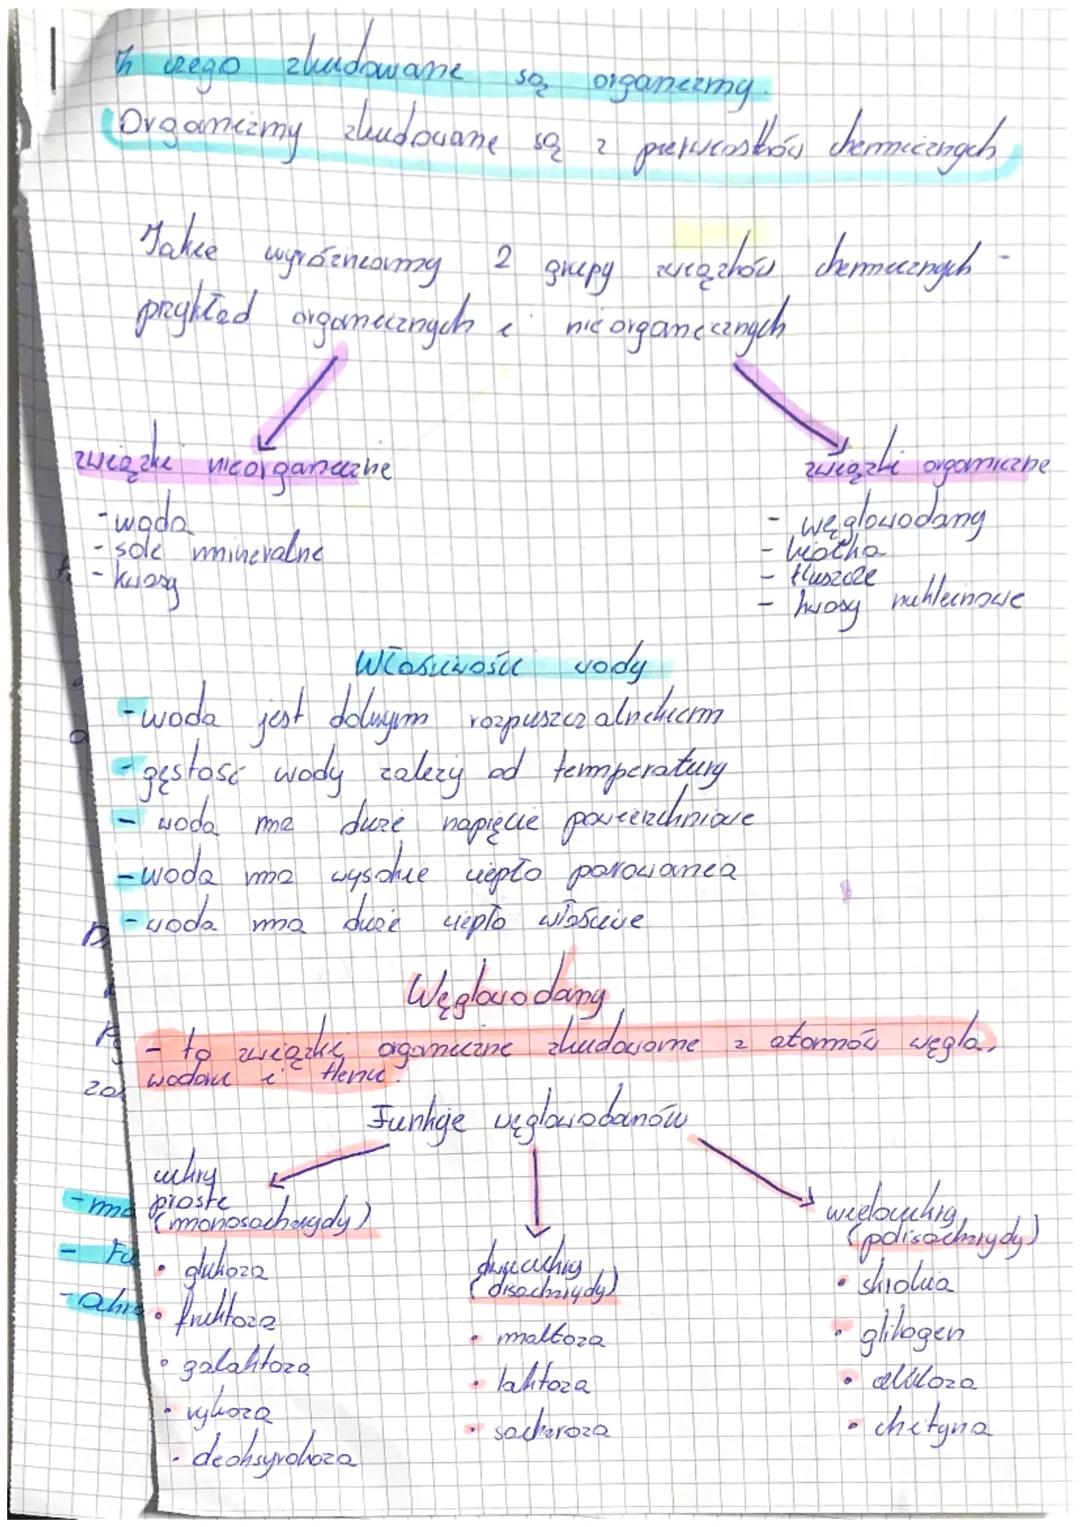 Z czego zbudowane są organizmy.
Organizmy zbudowane są z pierwiastków chemicznych
Jakie wyróżniamy 2 grupy związków chemicznych -
przykład organicznych i nieorganicznych
związki nieorganiczne
- woda
- sole mineralne
- kwasy
związki organiczne
- węglowodany
- białka
- tłuszcze
- kwasy nukleinowe
Właściwości wody
- woda jest dobrym rozpuszczalnikiem
- gęstość wody zależy od temperatury
- woda ma duże napięcie powierzchniowe
- woda ma wysokie ciepło parowania
- woda ma duże ciepło właściwe
Węglowodany
- to związki organiczne zbudowane z atomów węgla,
wodoru i tlenu.
Funkcje węglowodanów
cukry
proste
(monosacharydy)
• glukoza
• fruktoza
• galaktoza
• ryboza
• deoksyryboza
dwucukry
(disacharydy)
• maltoza
• laktoza
• sacharoza
wielocukry
(polisacharydy)
• skrobia
• glikogen
• celuloza
• chityna